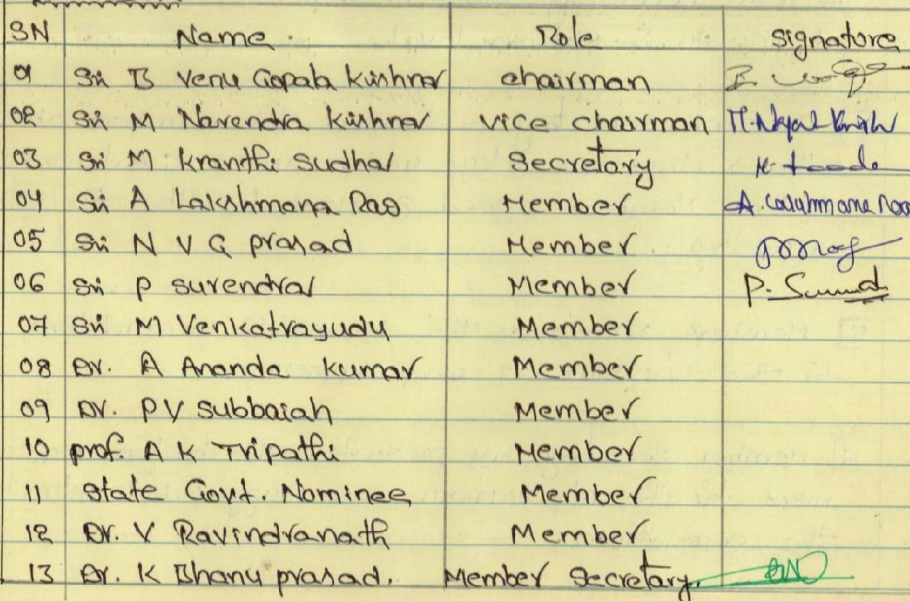 SN Name. Role Signature
01 Sri B Venu Gopala Krishna chairman
02 Sri M Narendra Krishna vice chairman
03 Sri M Kranthi Sudha Secretary
04 Sri A Lakshmana Rao Member A. Lakshmana Rao
05 Sri N V G prasad Member
06 Sri P Surendra Member P.
07 Sri M Venkatrayudu Member
08 Dr. A Ananda Kumar Member
09 Dr. P V Subbaiah Member
10 prof. A K Tripathi Member
11 State Govt. Nominee Member
12 Dr. V Ravindranath Member
13 Dr. K Bhanu prasad. Member Secretary.